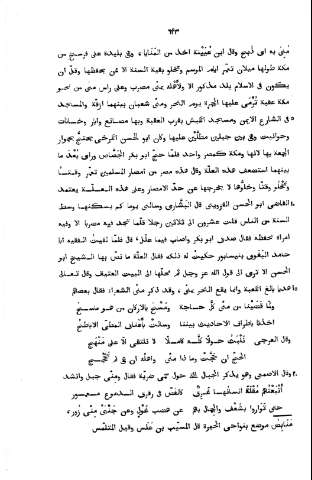 ٦٤٣
مُنِيَ به اى ذُبح وقال ابن عُيَيْنة اخذ من المنايا، وهى بليدة على فرسخ من
مكة طولها ميلان تعمر ايام الموسم وتخلو بقية السنة الا ممن يحفظها وقل ان
يكون فى الاسلام بلد مذكور الا ولأهله بمنى مضرب وعلى راس منى من نحو
مكة عقبة تُرْمى عليها الجمرة يوم النحر ومنى شعبان بينهما ازقّة والمساجد
فى الشارع الايمن ومسجد الكبش بقرب العقبة وبها مصانع وابار وخانات
وحوانيت وهى بين جبلين مطلّين عليها وكان ابو الحسن الكرخى يحتج بجواز
الجمعة بها لانها ومكة كمصر واحد فلما حج ابو بكر الجصّاص وراى بُعْد ما
بينهما استضعف هذه العلّة وقال هذه مصر من امصار المسلمين تعمر وقتا
وتخلو وقتا وخلوّها لا يخرجها عن حدّ الامصار وعلى هذه العلة يعتمد
القاضى ابو الحسن القزوينى قال البشارى وسالنى يوما كم يسكنها وسط
السنة من الناس قلت عشرون الى ثلاثين رجلا قلما تجد فيه مضربا الا وفيه
امراة تحفظه فقال صدق ابو بكر واصاب فيما علّل، قال فلما لقيت الفقيه ابا
حامد البغوى بنيسابور حكيت له ذلك فقال العلّة ما نصّ بها الشيخ ابو
الحسن الا ترى الى قول الله عز وجل ثم محلّها الى البيت العتيق وقال تعالى
هديا بالغ الكعبة وانما يقع النحر بمنى، وقد ذكر منى الشعراء فقال بعضهم
ولمّا قضينا من منًى كلّ حاجة ومَسّحَ بالاركان من هو ماسح
اخذنا باطراف الاحاديث بيننا وسالت باعناق المطىّ الاباطح
وقال العرجى نلبث حولا كلّه كاملا لا نلتقى الّا على منهج
الحجّ ان حجّت وما ذا منى واهله ان هى لم تحجج
وقال الاصمعى وهو يذكر الجبال لك حول حمى ضرية فقال ومنى جبل وانشد
أتبعتهم مقلة انسانها غرق كالفصّ فى رقرق الدموع مغمور
حتى تواروا بشعف والجمال بهم عن هضب غول وعن جنبى منى زور،
منابض موضع بنواحى الحيرة قال المسيّب بن علس وقيل المتلمس